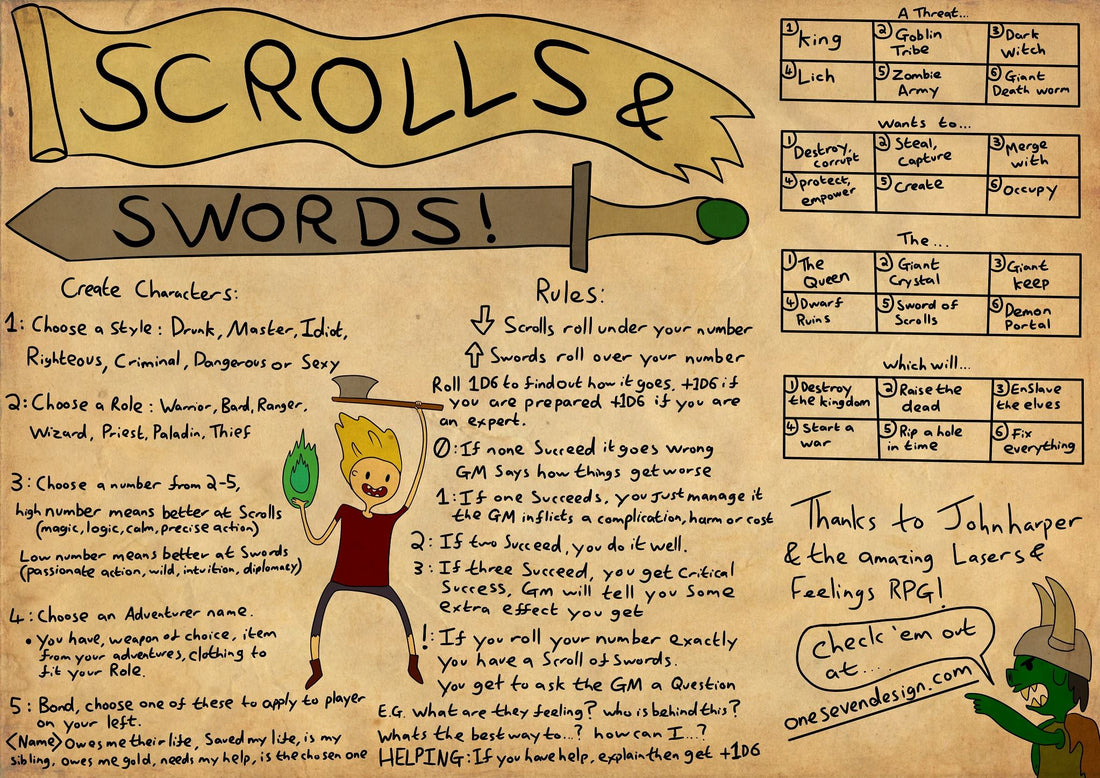 SCROLLS &
SWORDS!
Create Characters:
1: Choose a Style: Drunk, Master, Idiot,
Righteous, Criminal, Dangerous or Sexy
2: Choose a Role: Warrior, Bard, Ranger,
Wizard, Priest, Paladin, Thief
3: Choose a number from 2-5,
high number means better at Scrolls
(magic, logic, calm, precise action)
Low number means better at Swords
(passionate action, wild, intuition, diplomacy)
4: Choose an Adventurer name.
• You have, weapon of choice, item
from your adventures, clothing to
fit your Role.
5: Bond, choose one of these to apply to player
on your left.
<Name> Owes me their life, Saved my life, is my
sibling, owes me gold, needs my help, is the chosen one
Rules:
⇩ Scrolls roll under your number
⇧ Swords roll over your number
Roll 1D6 to find out how it goes, +1D6 if
you are prepared +1D6 if you are
an expert.
0: If none Succeed it goes wrong
GM Says how things get worse
1: If one Succeeds, you just manage it
the GM inflicts a complication, harm or cost
2: If two Succeed, you do it well.
3: If three Succeed, you get Critical
Success, Gm will tell you Some
extra effect you get
!: If you roll your number exactly
you have a Scroll of Swords.
You get to ask the GM a Question
E.G. What are they feeling? who is behind this?
Whats the best way to...? how can I...?
HELPING: If you have help, explain then get +1D6
A Threat...
1 King
2 Goblin Tribe
3 Dark Witch
4 Lich
5 Zombie Army
6 Giant Death worm
Wants to...
1 Destroy, corrupt
2 Steal, Capture
3 Merge with
4 protect, empower
5 Create
6 Occupy
The...
1 The Queen
2 Giant Crystal
3 Giant keep
4 Dwarf Ruins
5 Sword of Scrolls
6 Demon Portal
which will...
1 Destroy the kingdom
2 Raise the dead
3 Enslave the elves
4 Start a war
5 Rip a hole in time
6 Fix everything
Thanks to John harper
& the amazing Lasers &
Feelings RPG!
Check 'em out
at....
onesevendesign.com